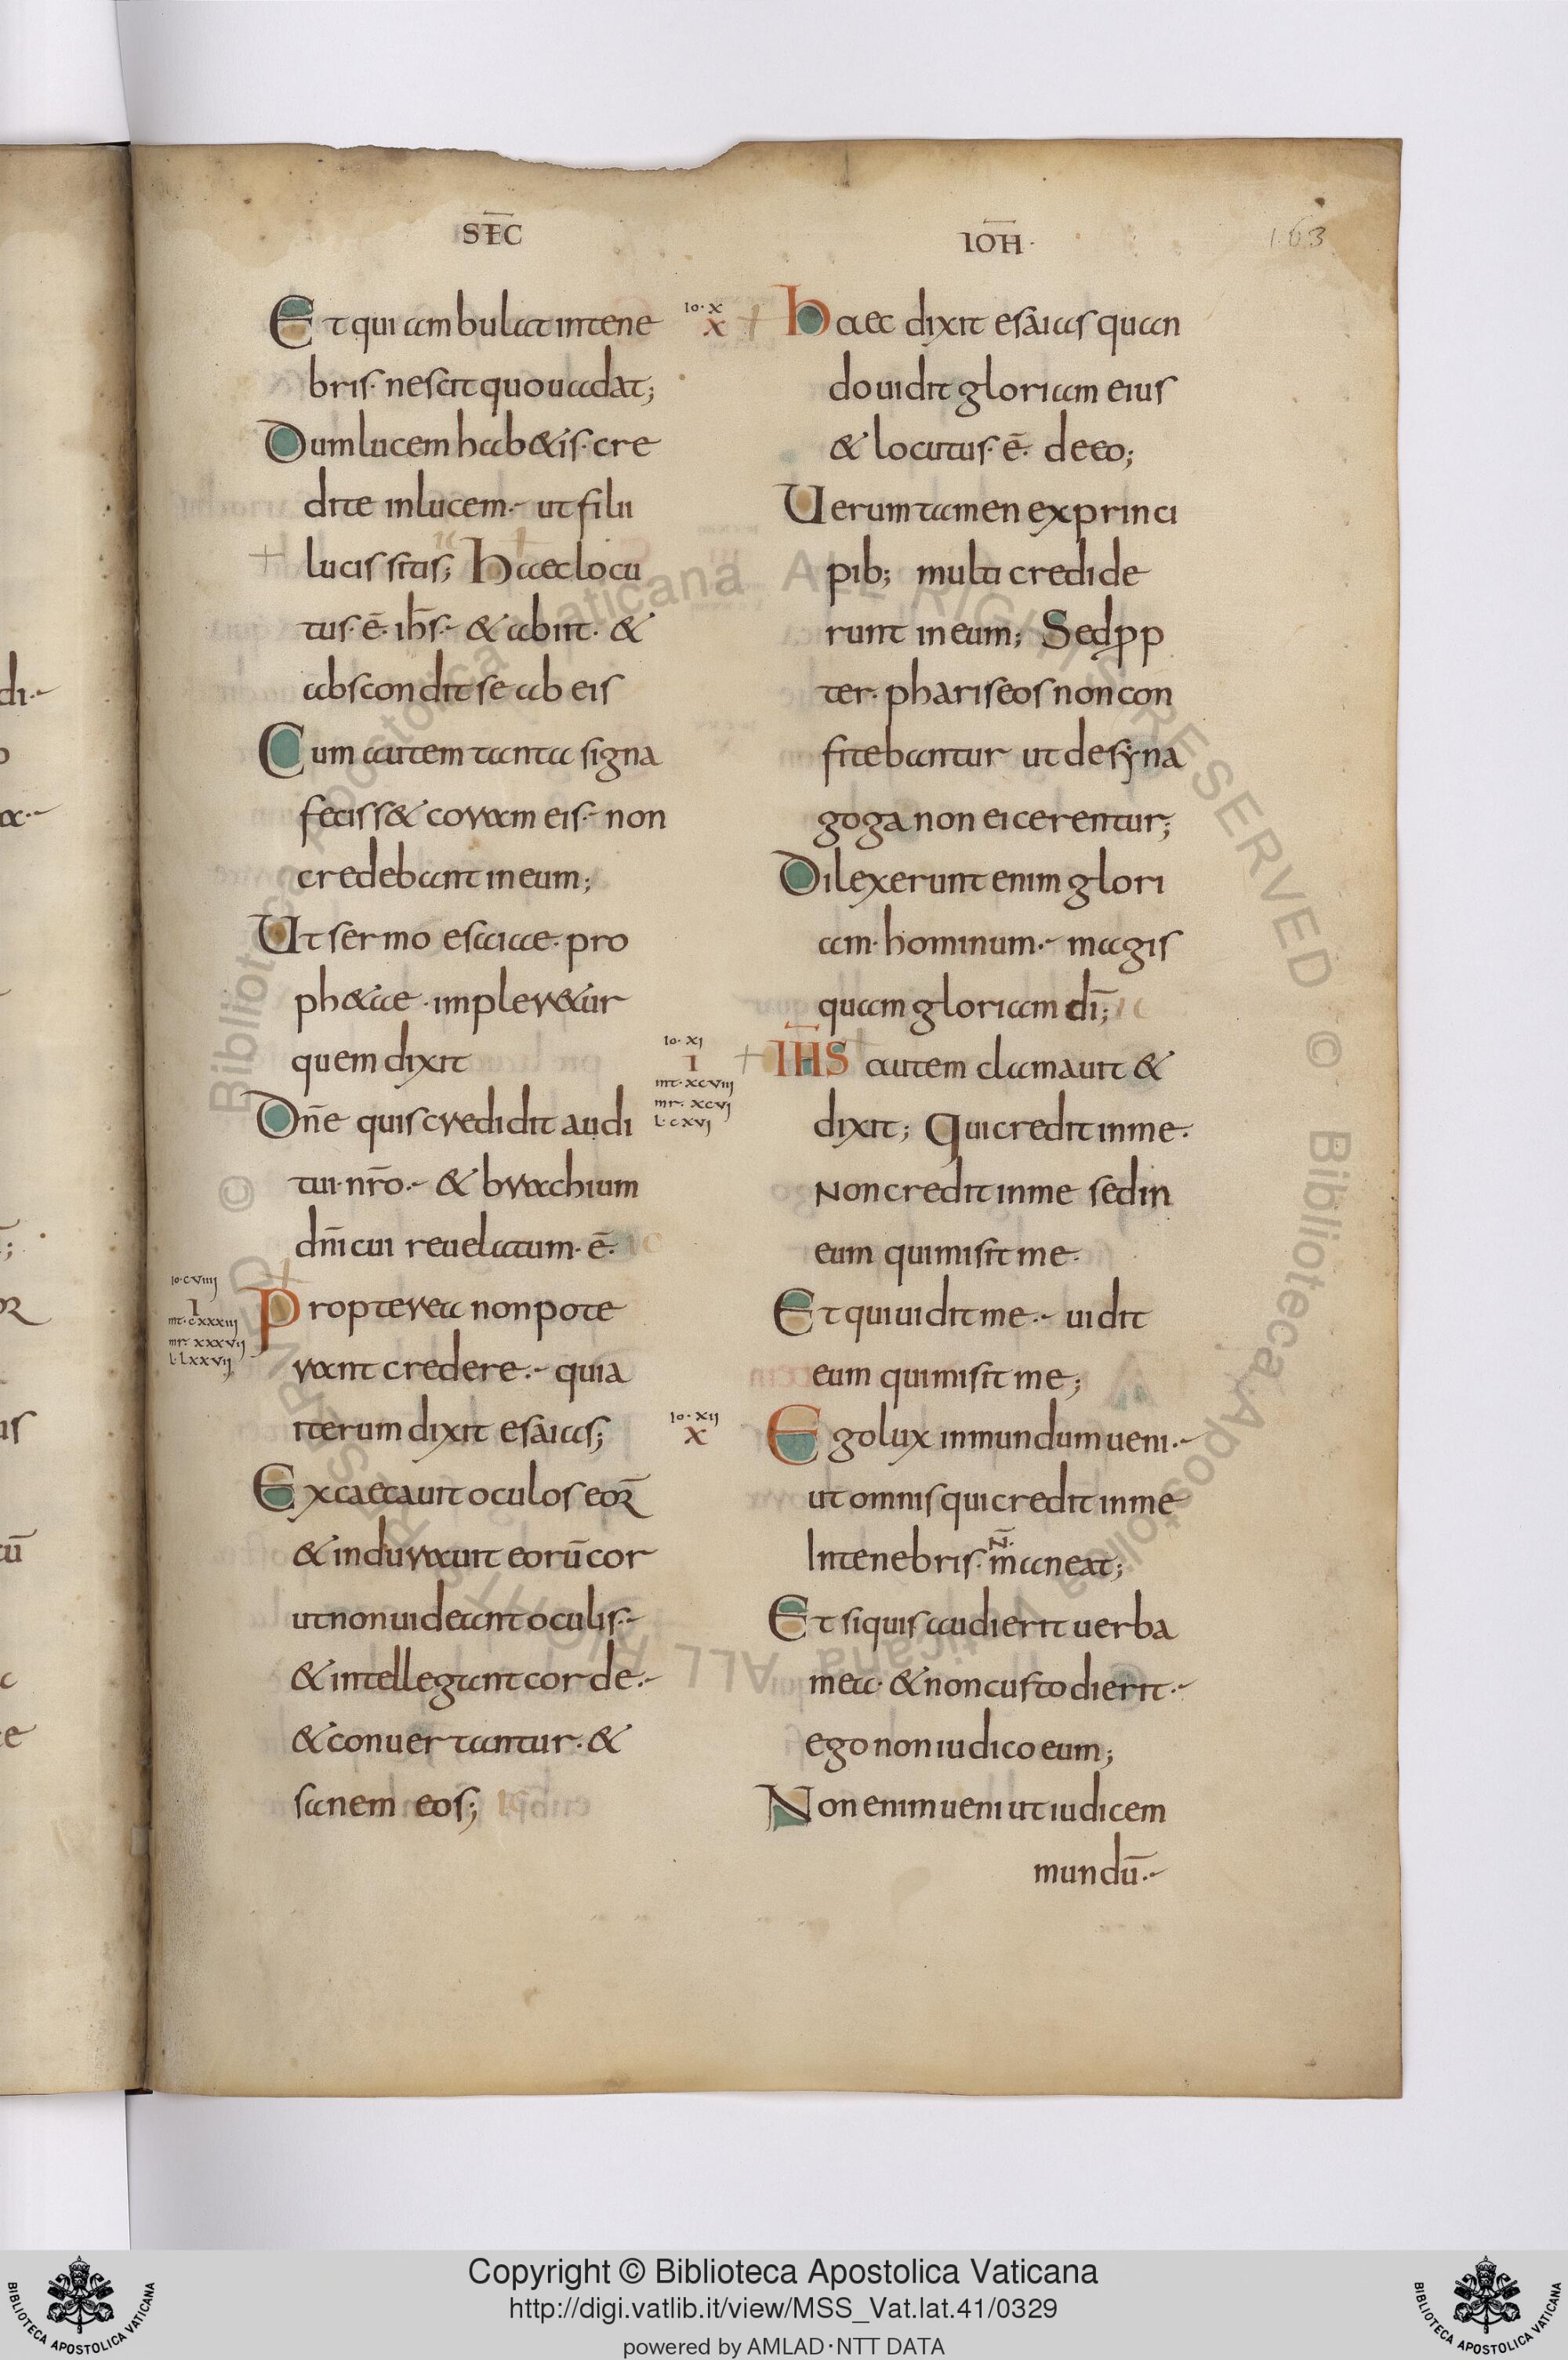 SEC̅
IOH̅·
163
Et qui ambulat in tene
bris· nescit quo uadat;
Dum lucem hab&is· cre
dite in lucem·~ ut filii
lucis sitis; Haec locu
tus· ē· ih̅s·~ & abiit· &
abscondit se ab eis
Cum autem tanta signa
feciss& coram eis·~ non
credebant in eum;
Ut sermo esaiae· pro
ph&ae· impler&ur
quem dixit
Dn̅e quis credidit audi
tui· nr̅o·~ & bracchium
dn̅i cui reuelatum· ē·
Io· cviiii
I
mt· cxxxiii
mr· xxxvii
l· lxxvii
Propterea non pote
rant credere·~ quia
iterum dixit esaias;
Excaecauit oculos eoꝝ
& indurauit eorū cor
ut non uideant oculis·~
& intellegant corde·~
& conuertantur· &
sanem eos;
Io· x
x
Haec dixit esaias quan
do uidit gloriam eius
& locutus· ē· de eo;
Uerum tamen ex princi
pib; multi credide
runt in eum; Sed pp
ter· phariseos non con
fitebantur ut de syna
goga non eicerentur;
Dilexerunt enim glori
am· hominum·~ magis
quam gloriam dī;
Io· xi
I
mt· xcviii
mr· xcvi
l· cxvi
IH̅S autem clamauit &
dixit; Qui credit in me·
Non credit in me sed in
eum qui misit me·
Et qui uidit me·~ uidit
eum qui misit me;
Io· xii
x
Ego lux in mundum ueni·~
ut omnis qui credit in me
In tenebris· N̅· maneat;
Et si quis audierit uerba
mea· & non custodierit·~
ego non iudico eum;
Non enim ueni ut iudicem
mundū·~
Copyright © Biblioteca Apostolica Vaticana
http://digi.vatlib.it/view/MSS_Vat.lat.41/0329
powered by AMLAD·NTT DATA
BIBLIOTECA APOSTOLICA VATICANA
BIBLIOTECA APOSTOLICA VATICANA